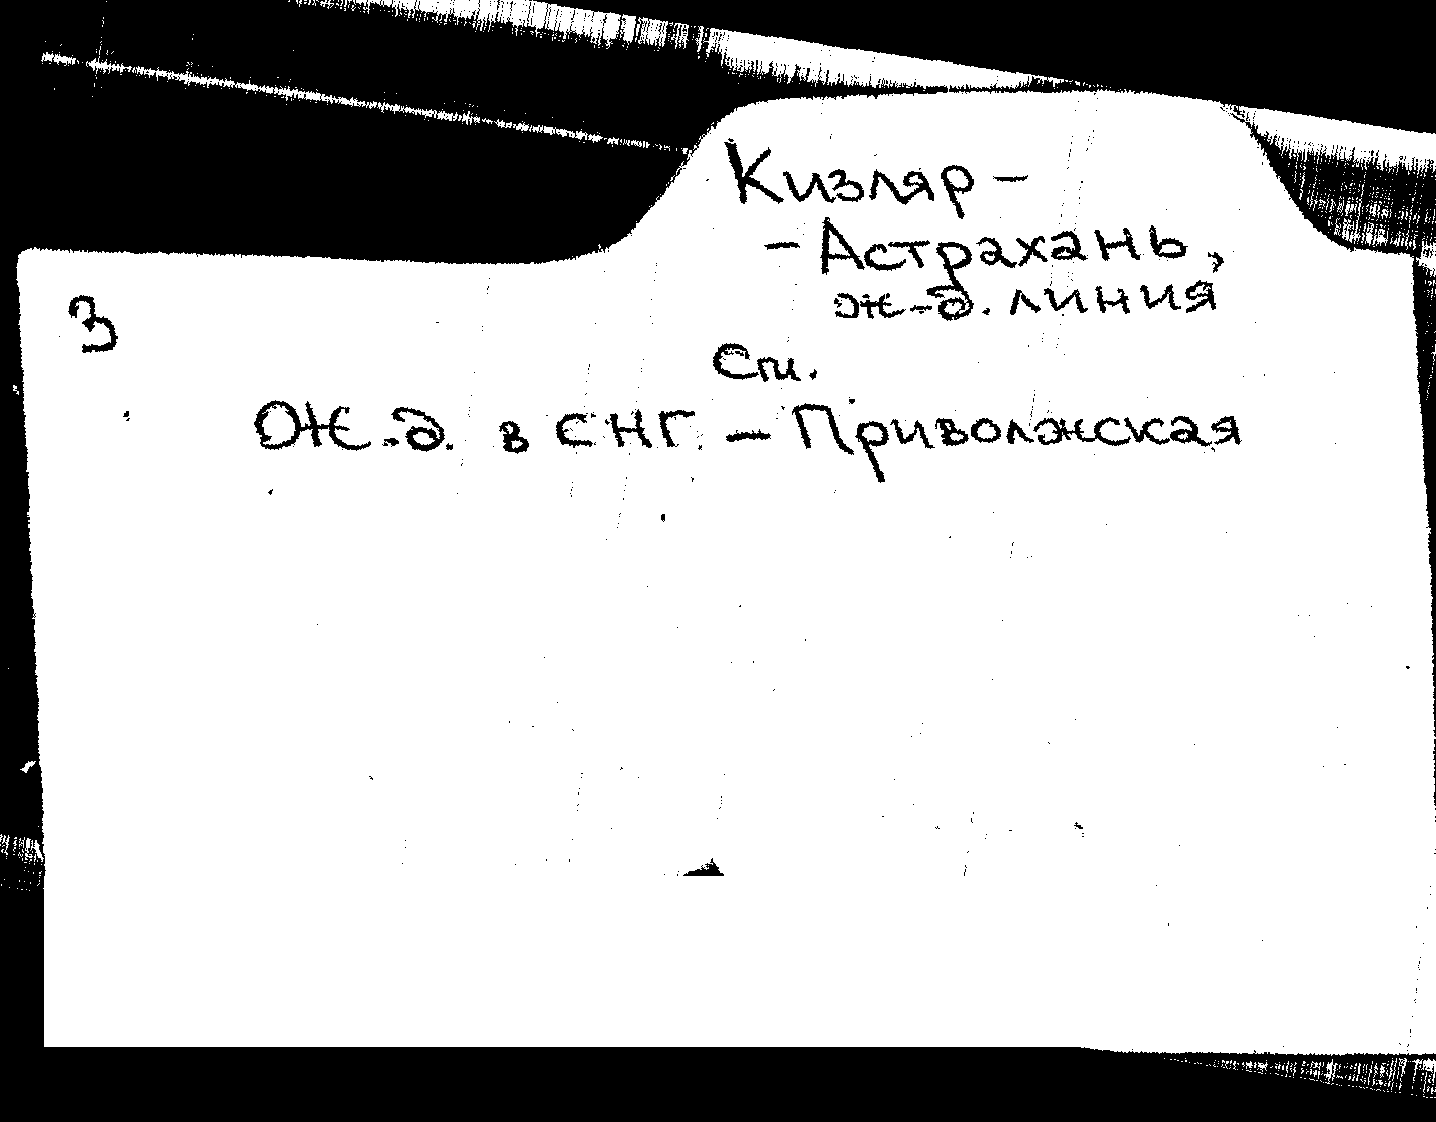 Кизляр –
– Астрахань,
ж-д. линия
3
См.
Ж.-д. в СНГ. – Приволжская